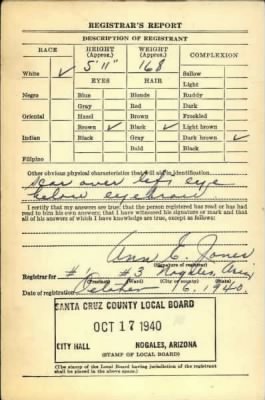 REGISTRAR'S REPORT
DESCRIPTION OF REGISTRANT
RACE HEIGHT (Approx.) WEIGHT (Approx.) COMPLEXION
5' 11" 168
White ✓ EYES HAIR Sallow
Light
Negro Blue Blonde Ruddy
Gray Red Dark
Oriental Hazel Brown Freckled
Brown ✓ Black ✓ Light brown
Indian Black Gray Dark brown ✓
Bald Black
Filipino
Other obvious physical characteristics that will aid in identification
Scar over left eye
below eyebrow
I certify that my answers are true; that the person registered has read or has had
read to him his own answers; that I have witnessed his signature or mark and that
all of his answers of which I have knowledge are true, except as follows:
Ann E. Jones
(Signature of registrar)
Registrar for #3 Nogales, Ariz
(Precinct) (Ward) (City or county) (State)
Date of registration October 16, 1940.
SANTA CRUZ COUNTY LOCAL BOARD
OCT 17 1940
CITY HALL NOGALES, ARIZONA
(STAMP OF LOCAL BOARD)
(The stamp of the Local Board having jurisdiction of the registrant
shall be placed in the above space.)